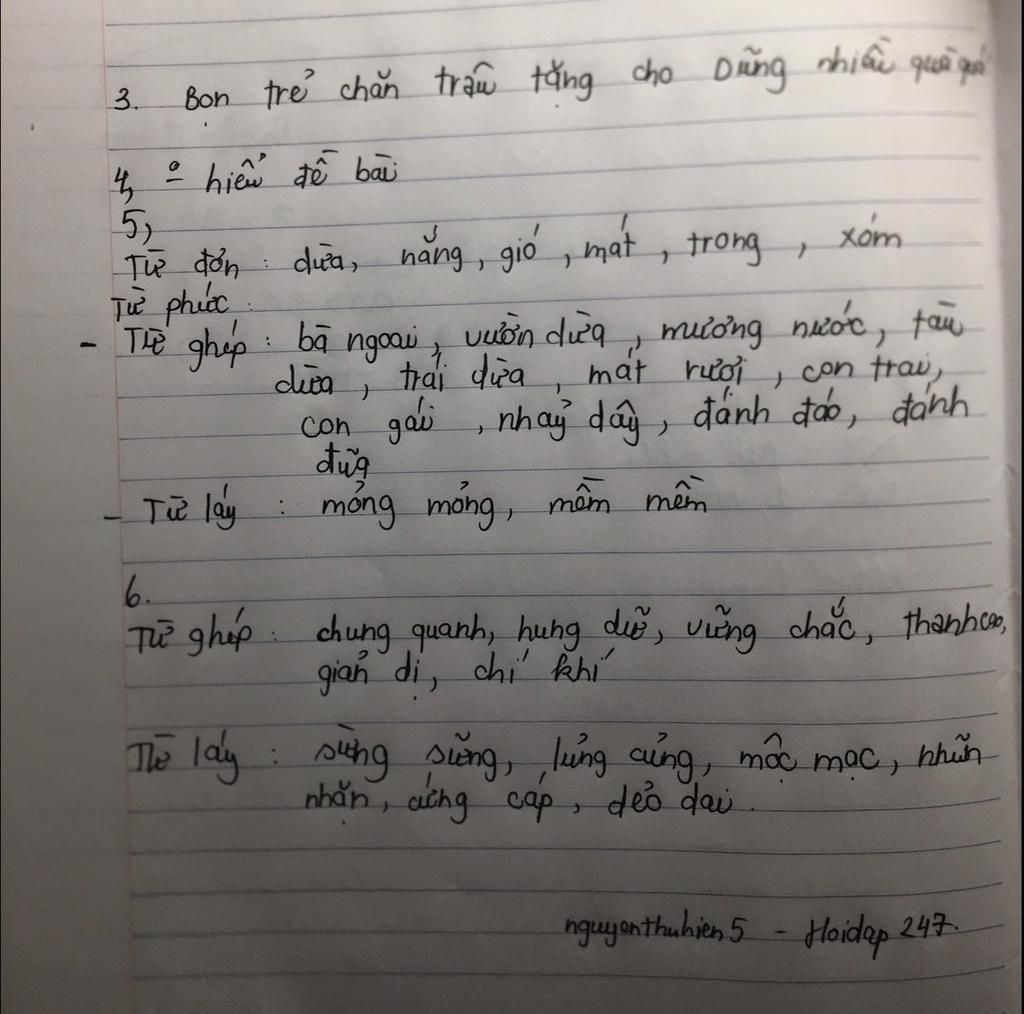 3. Bọn trẻ chăn trâu tặng cho Dũng nhiều quà quá
4, º hiểu đề bài
5,
Từ đơn : dừa, nắng, gió, mát, trong, xóm
Từ phức :
- Từ ghép : bà ngoại, vườn dừa, mương nước, tàu
dừa, trái dừa, mát rượi, con trai,
con gái, nhảy dây, đánh đáo, đánh
đũa
- Từ láy : mỏng mỏng, mềm mềm
6.
Từ ghép : chung quanh, hung dữ, vững chắc, thanh cao,
giản dị, chí khí
Từ láy : sừng sững, lủng củng, mộc mạc, nhũn
nhặn, cứng cáp, dẻo dai.
nguyenthuhien5 - Hoidap 247.